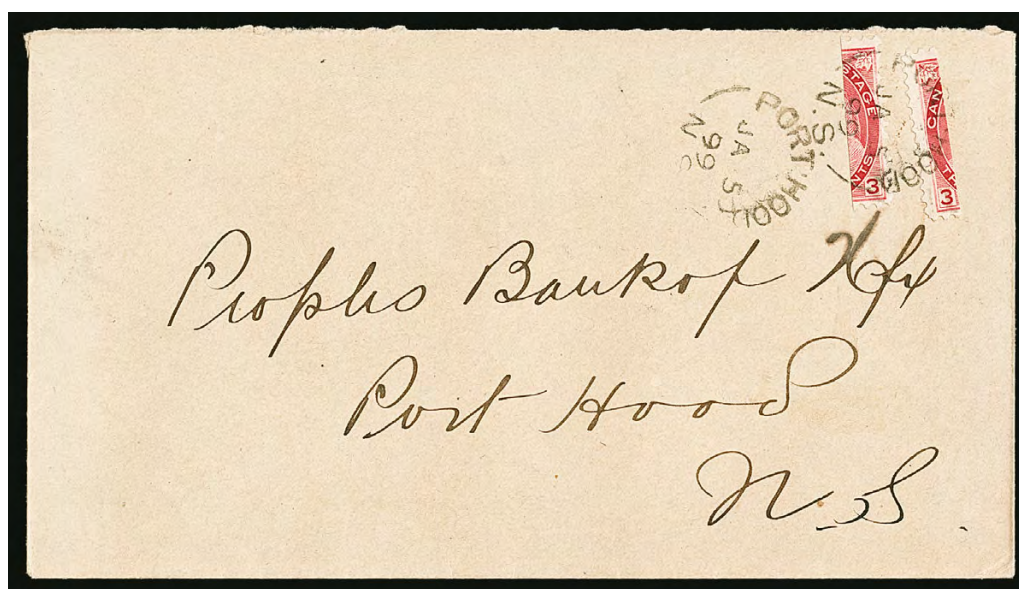 PORT HOOD
N.S.
JA 5
99
STAGE
NTS
3
CAN
TH
3
Peoples Bank of Hfx
Port Hood
N.S.